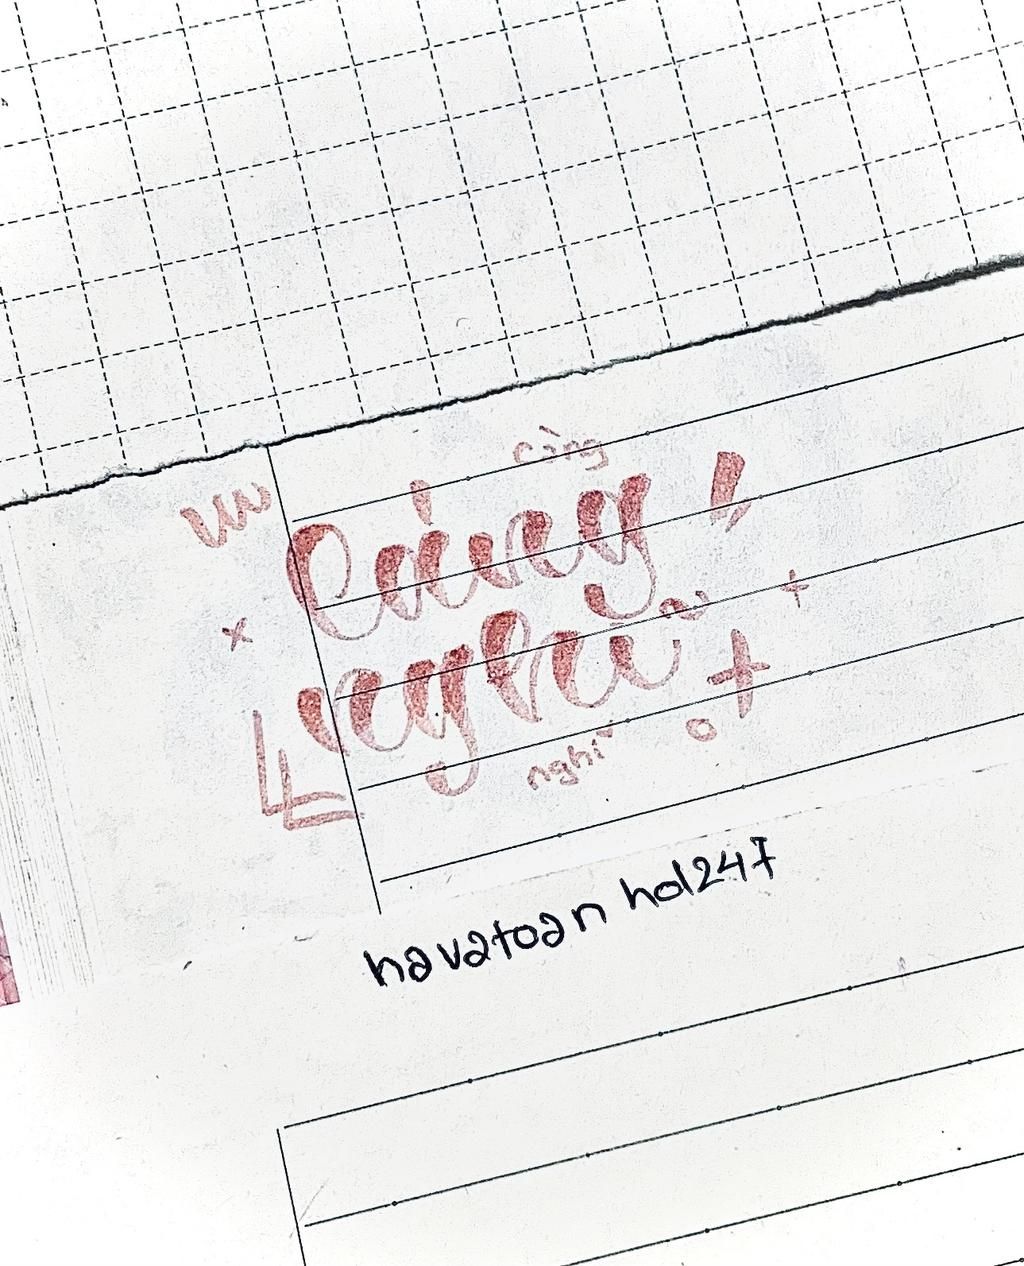 càng
Càng
nghĩ
nghĩ
havatoan hol247